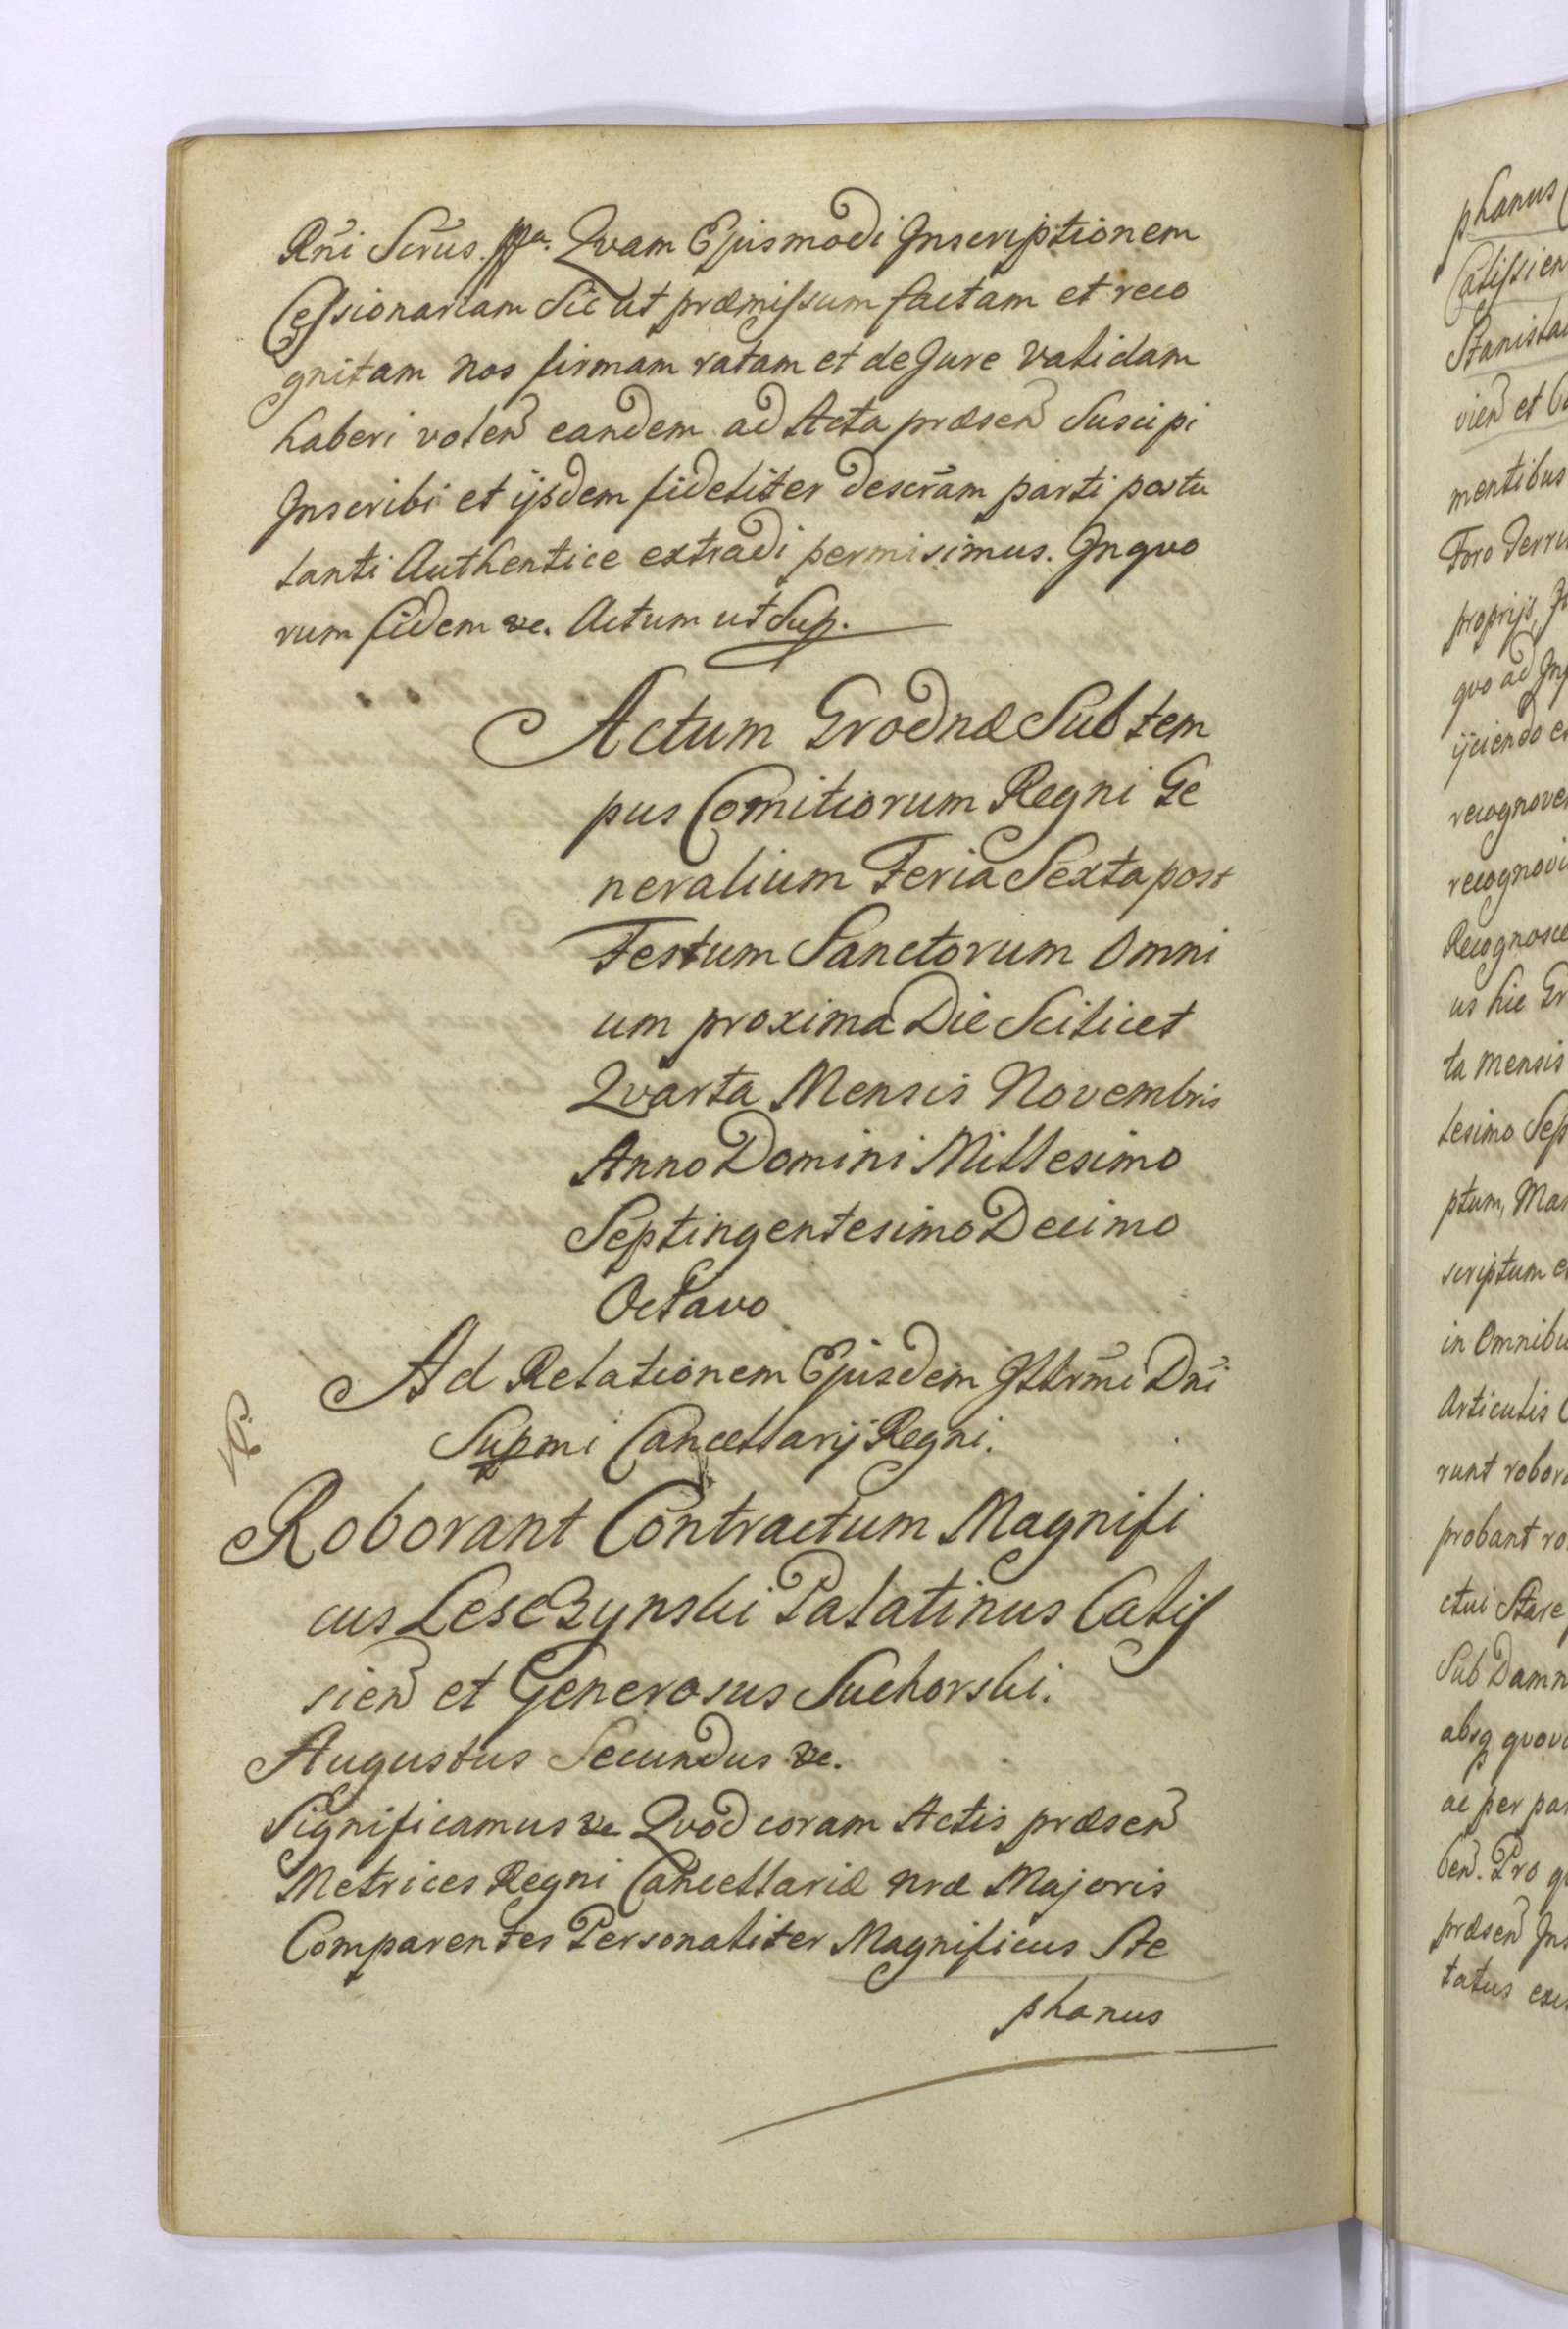 Rñi Scrũs. mpa. Qvam Ejusmodi Inscriptionem
Cessionariam Sic ut præmissum factam et reco
gnitam nos firmam ratam et de Jure validam
haberi volen̄ eandem ad Acta præsen̄ Suscipi
Inscribi et ijsdem fideliter descrãm parti postu
lanti Authentice extradi permisimus. In qvo
rum fidem &c. Actum ut Sup.
Actum Grodnæ Sub tem
pus Comitiorum Regni Ge
neralium Feria Sexta post
Festum Sanctorum Omni
um proxima Die Scilicet
Qvarta Mensis Novembris
Anno Domini Millesimo
Septingentesimo Decimo
Octavo
Ad Relationem Ejusdem Illrm̃i Dñi
Supmi Cancellarij Regni.
Roborant Contractum Magnifi
cus Lesczynski Palatinus Calis
sien̄ et Generosus Suchorski.
Augustus Secundus &c.
Significamus &c Qvod coram Actis præsen̄
Metrices Regni Cancellariæ nræ Majoris
Comparentes Personaliter Magnificus Ste
phanus
phanus
Calissien
Stanisla
vien̄ et
mentibus
Foro Terr
proprijs,
qvo ad
ijciendo
recognove
recognovi
Recognosce
us hic Gr
ta Mensis
lesimo Sep
ptum, Man
scriptum
in Omnibu
Articulis
runt robor
probant ro
ctui Stare
Sub Damn
absq qvov
ac per par
ben̄. Pro
præsen̄ Ins
tatus